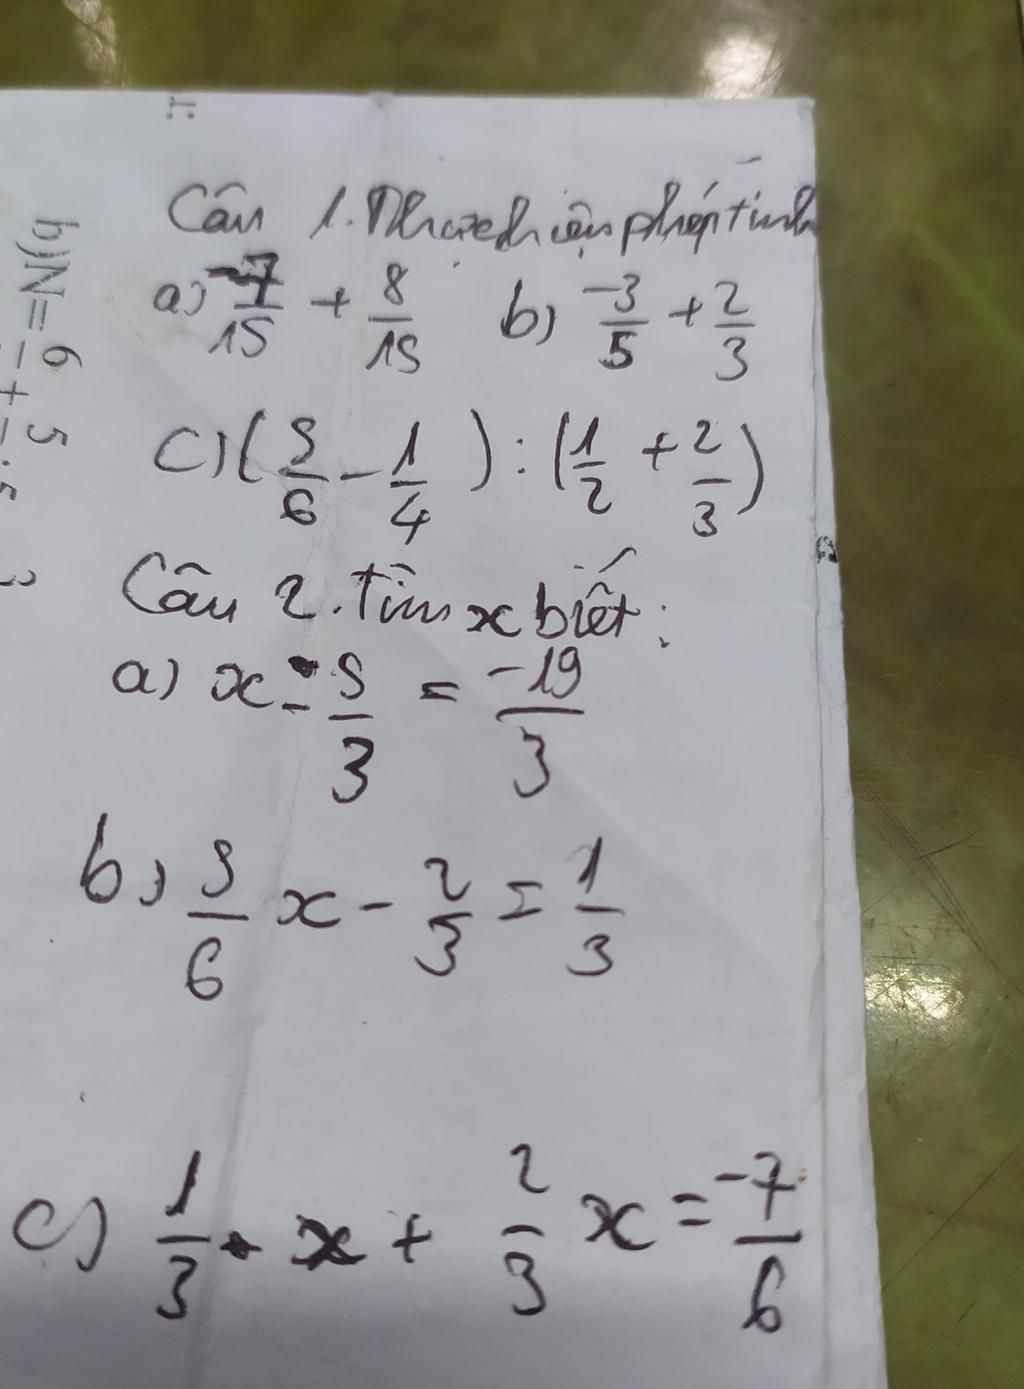 Câu 1. Thực hiện phép tính
a) -7/15 + 8/15 b) -3/5 + 2/3
c) (5/6 - 1/4) : (1/2 + 2/3)
Câu 2. Tìm x biết:
a) x - 5/3 = -19/3
b) 5/6 x - 2/3 = 1/3
c) 1/3 . x + 2/3 x = -7/6
b) N = 6 + 5 . 5